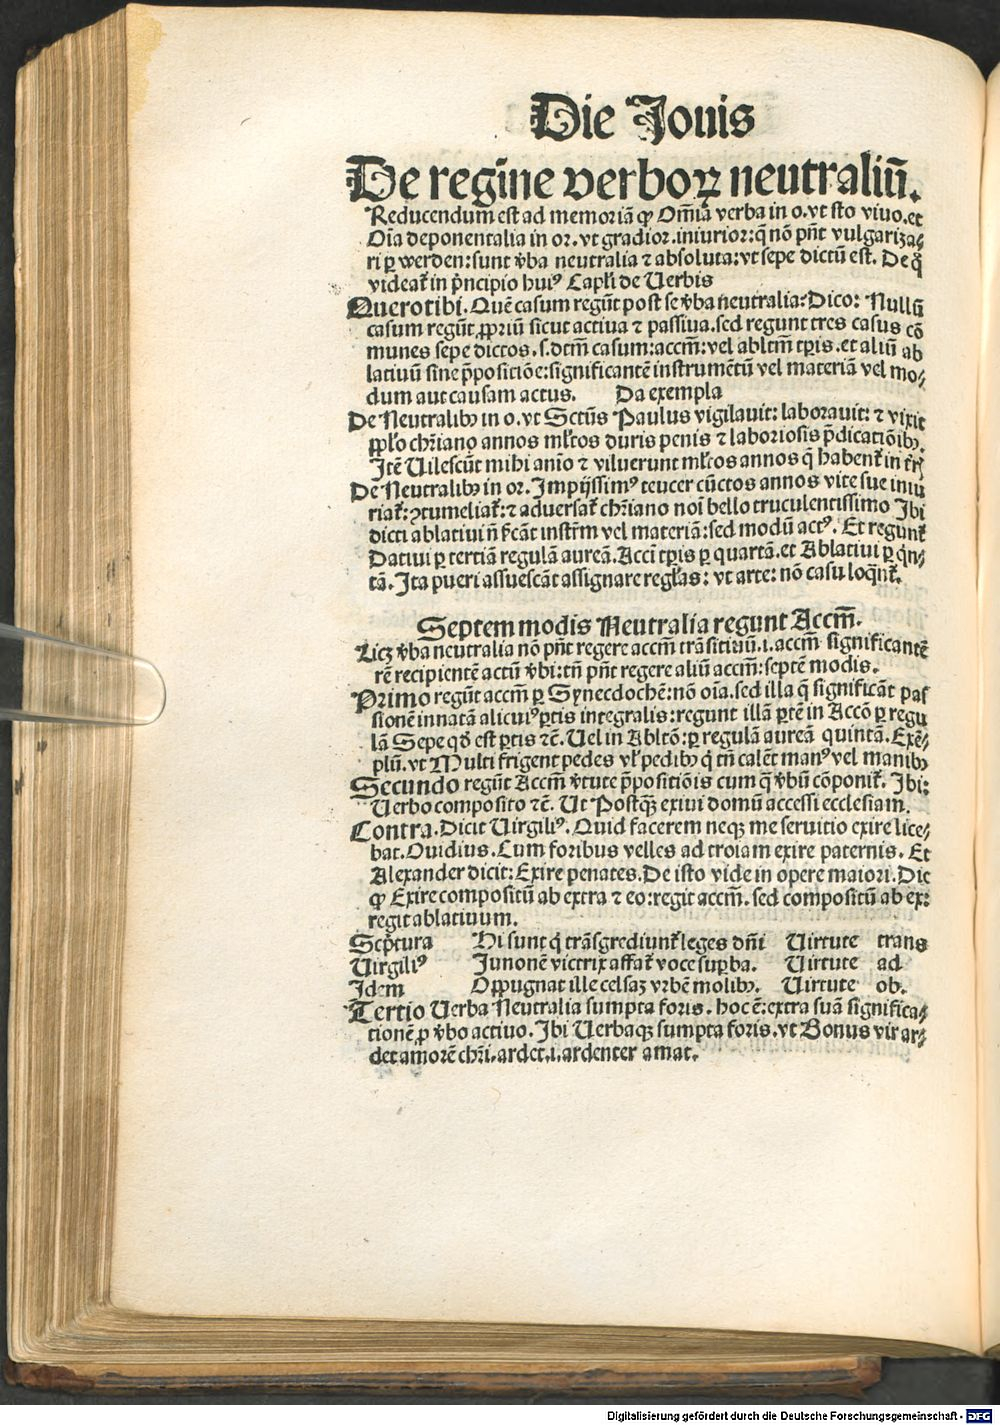 Die Jouis
De regiīne verboꝝ neutraliū.
Reducendum est ad memoriā ꝙ Om̄ia verba in o. vt sto viuo. et
Oīa deponentalia in or. vt gradior. iniurior: q̄ nō pn̄t vulgariza⸗
ri ꝑ werden: sunt v̄ba neutralia ⁊ absoluta: vt sepe dictū est. De q̊
videat᷑ in p̄ncipio huiꝰ Capl̓i de Verbis
Querotibi. Quē casum regūt post se v̄ba neutralia: Dico: Nullū
casum regūt ꝓpriū sicut actiua ⁊ passiua. sed regunt tres casus cō
munes sepe dictos. s. dtm̄ casum: accm̄: vel abltm̄ tꝑis. et aliū ab
latiuū sine p̄positiōe: significantē instrumētū vel materiā vel mo⸗
dum aut causam actus. Da exempla
De Neutralibꝫ in o. vt Sctūs Paulus vigilauit: laborauit: ⁊ vixit
ꝓplo chr̄iano annos ml̓tos duris penis ⁊ laboriosis p̄dicatiōibꝫ.
Jtē Vilescūt mihi anīo ⁊ viluerunt ml̓tos annos q̄ habent᷑ in
De Neutralibꝫ in or. Jmpijssimꝰ teucer cūctos annos vite sue iniu
riat᷑: ꝯtumeliat᷑: ⁊ aduersat᷑ chr̄iano noī bello truculentissimo Jbi
dicti ablatiui n̄ sīcāt instr̄m vel materiā: sed modū actꝰ. Et regunt᷑
Datiui ꝑ tertiā regulā aureā. Acci tꝑis ꝑ quartā. et Ablatiui ꝑ qn̄⸗
tā. Jta pueri assuescāt assignare regl̓as: vt arte: nō casu loqn̄t᷑.
Septem modis Neutralia regunt Accm̄.
Licꝫ v̄ba neutralia nō pn̄t regere accm̄ trāsitiuū. i. accm̄ significantē
rē recipientē actū v̄bi: tn̄ pn̄t regere aliū accm̄: septē modis.
Primo regūt accm̄ ꝑ Synecdochē: nō oīa. sed illa q̄ significāt pas
sionē innatā alicuiꝰ ꝑtis integralis: regunt illā ꝑtē in Accō ꝑ regu
lā Sepe qd̓ est ꝑtis ⁊c̄. Vel in Abltō: ꝑ regulā aureā quintā. Exē⸗
plū. vt Multi frigent pedes vl̓ pedibꝫ q̇ tn̄ calēt manꝰ vel manibꝫ
Secundo regūt Accm̄ v̄tute p̄positiōis cum q̄ v̄bū cōponit᷑. Jbi:
Verbo composito ⁊c̄. Vt Postqꝫ exiui domū accessi ecclesiam.
Contra. Dicit Virgiliꝰ. Quid facerem neqꝫ me seruitio exire lice⸗
bat. Ouidius. Cum foribus velles ad troiam exire paternis. Et
Alexander dicit: Exire penates. De isto vide in opere maiori. Dic
ꝙ Exire compositū ab extra ⁊ eo: regit accm̄. sed compositū ab ex:
regit ablatiuum.
Scp̄tura Hi sunt q̇ trāsgrediunt᷑ leges dn̄i Virtute trans
Virgiliꝰ Junonē victrix affat᷑ voce suꝑba. Virtute ad
Jdem Oppugnat ille celsaꝫ vrbē molibꝫ. Virtute ob.
Tertio Verba Neutralia sumpta foris. hoc ē: extra suā significa⸗
tionē ꝓ v̄bo actiuo. Jbi Verbaqꝫ sumpta foris. vt Bonus vir ar⸗
det amorē chr̄i. ardet. i. ardenter amat.
Digitalisierung gefördert durch die Deutsche Forschungsgemeinschaft - DFG